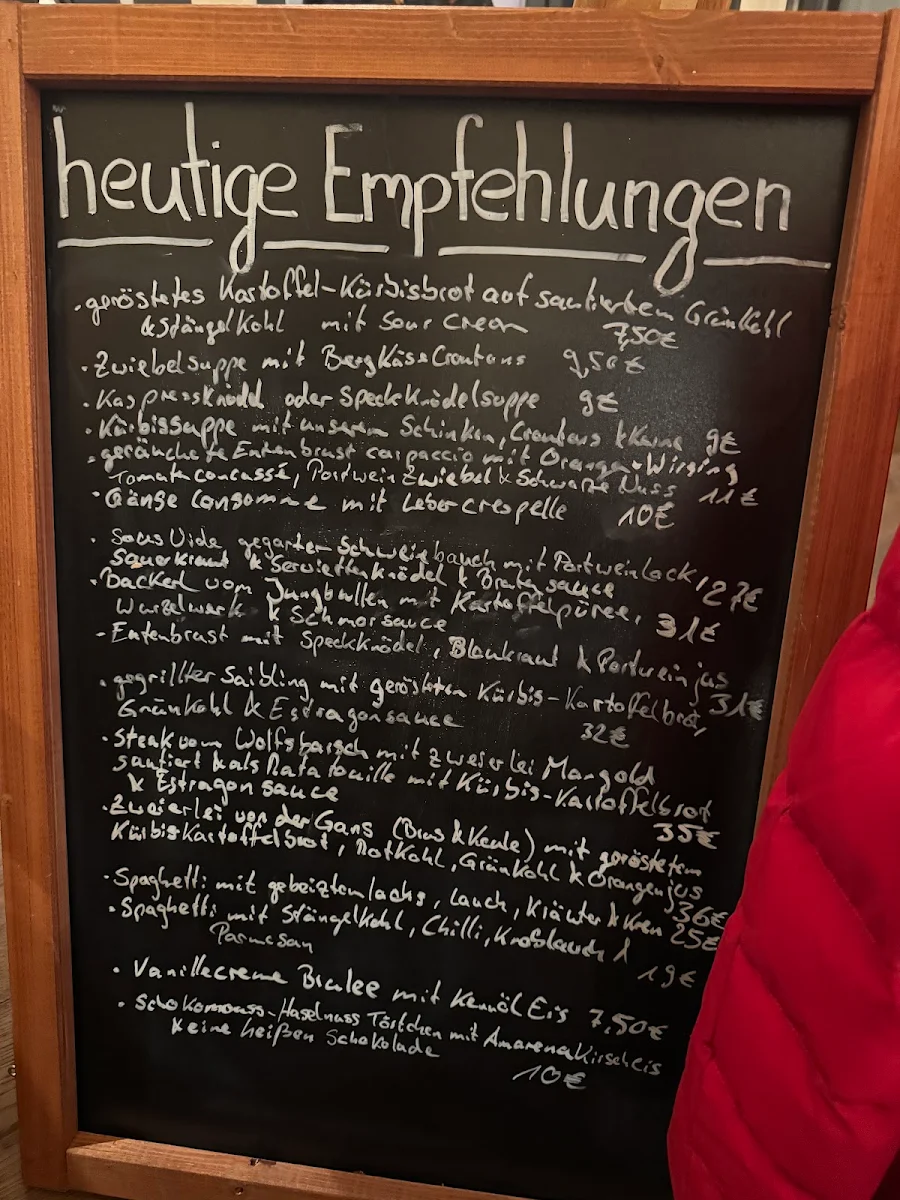 heutige Empfehlungen
· geröstetes Kartoffel-Kürbisbrot auf sautiertem Grünkohl
& Stängelkohl mit Sour Cream 7,50€
· Zwiebelsuppe mit BergKäseCroutons 9,50€
· Kaspressknödel oder SpeckKnödelsuppe 9€
· Kürbissuppe mit unserem Schinken, Croutons & Kerne 9€
· geräucherte Entenbrust carpaccio mit Orangen-Wirsing
Tomatenconcassé, PortweinZwiebel & Schwarze Nuss 11€
· Gänse Consomme mit Lebercrespelle 10€
· Sous Vide gegarter Schweinebauch mit Portweinlack,
Sauerkraut & Serviettenknödel & Bratensauce 27€
· Backerl vom Jungbullen mit Kartoffelpüree,
Wurzelwerk & Schmorsauce 31€
- Entenbrust mit Speckknödel, Blaukraut & Portweinjus 31€
· gegrillter Saibling mit gerösteten Kürbis-Kartoffelbrot,
Grünkohl & Estragonsauce 32€
· Steak vom Wolfsbarsch mit zweierlei Mangold
sautiert & als Ratatouille mit Kürbis-Kartoffelbrot
& Estragonsauce 35€
· Zweierlei von der Gans (Brus & Keule) mit geröstetem
KürbisKartoffelbrot, Rotkohl, Grünkohl & Orangenjus 36€
· Spaghetti mit gebeiztem lachs, Lauch, Kräuter & Kren 25€
· Spaghetti mit Stängelkohl, Chilli, Knoblauch &
Parmesan 19€
· Vanillecreme Brulee mit Kernöl Eis 7,50€
· Schokomouss-Haselnuss Törtchen mit AmarenaKirscheis
& eine heißen Schokolade
10€